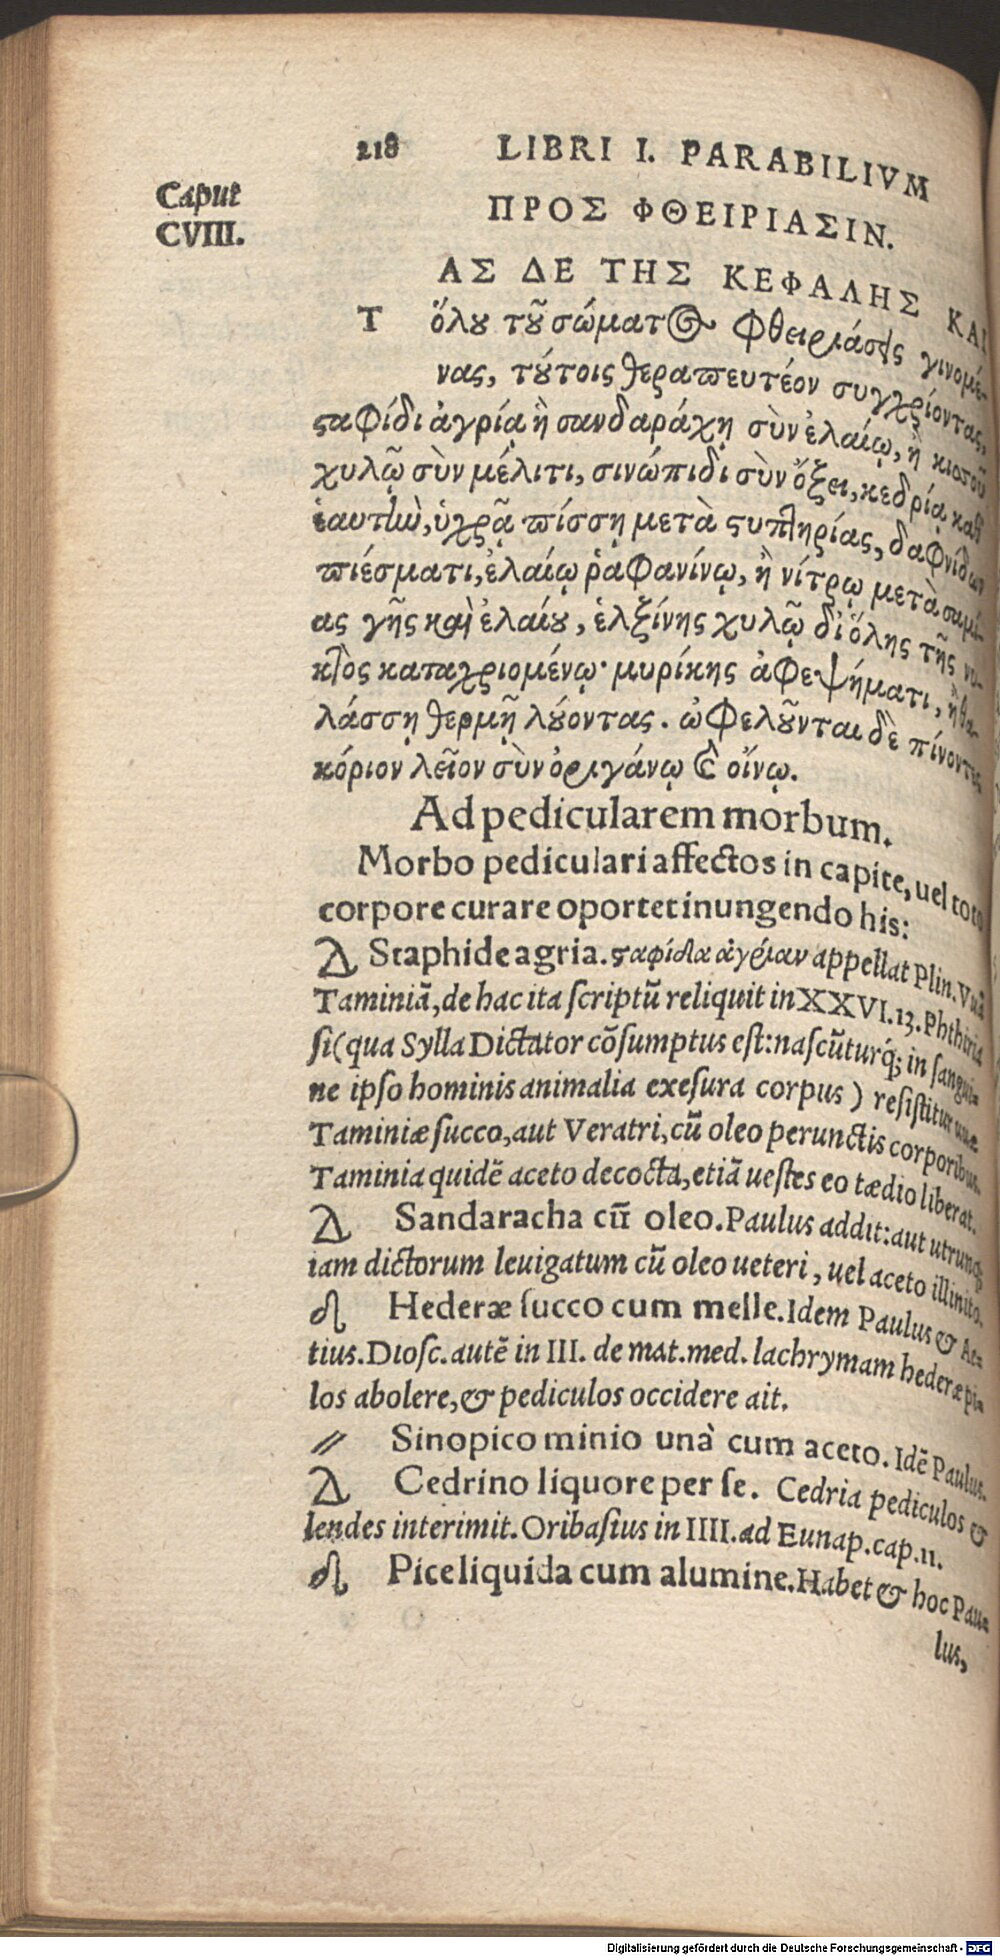 218 LIBRI I. PARABILIVM
Caput
CVIII.
ΠΡΟΣ ΦΘΕΙΡΙΑΣΙΝ.
ΤΑΣ ΔΕ ΤΗΣ ΚΕΦΑΛΗΣ ΚΑΙ
ὅλου τοῦ σώματος φθειριάσεις γινομέ-
νας, τούτοις θεραπευτέον συγχρίοντας,
σταφίδι ἀγρίᾳ ἢ σανδαράχῃ σὺν ἐλαίῳ, ἢ κισσοῦ
χυλῷ σὺν μέλιτι, σινώπιδι σὺν ὄξει, κεδρίᾳ καθ'
ἑαυτὴν, ὑγρᾷ πίσσῃ μετὰ στυπτηρίας, δαφνίδων
πιέσματι, ἐλαίῳ ῥαφανίνῳ, ἢ νίτρῳ μετὰ σαμί-
ας γῆς καὶ ἐλαίου, ἑλξίνης χυλῷ δι' ὅλης τῆς νυ-
κτὸς καταχριομένῳ· μυρίκης ἀφεψήματι, ἢ θα-
λάσσῃ θερμῇ λούοντας. ὠφελοῦνται δὲ πίνοντες
κόριον λεῖον σὺν ὀριγάνῳ καὶ οἴνῳ.
Ad pedicularem morbum.
Morbo pediculari affectos in capite, uel toto
corpore curare oportet inungendo his:
Staphide agria. σταφίδα ἀγρίαν appellat Plin. Vuã
Taminiã, de hac ita scriptũ reliquit in XXVI. 13. Phthiria
si (qua Sylla Dictator cõsumptus est: nascũturq́; in sangui-
ne ipso hominis animalia exesura corpus) resistitur uuæ
Taminiæ succo, aut Veratri, cũ oleo perunctis corporibus.
Taminia quidẽ aceto decocta, etiã uestes eo tædio liberat.
Sandaracha cũ oleo. Paulus addit: aut utrunq;
iam dictorum leuigatum cũ oleo ueteri, uel aceto illinito.
Hederæ succo cum melle. Idem Paulus & Ae-
tius. Diosc. autẽ in III. de mat. med. lachrymam hederæ pi-
los abolere, & pediculos occidere ait.
Sinopico minio unà cum aceto. Idẽ Paulus.
Cedrino liquore per se. Cedria pediculos &
lendes interimit. Oribasius in IIII. ad Eunap. cap. 11.
Pice liquida cum alumine. Habet & hoc Pau-
lus,
Digitalisierung gefördert durch die Deutsche Forschungsgemeinschaft - DFG